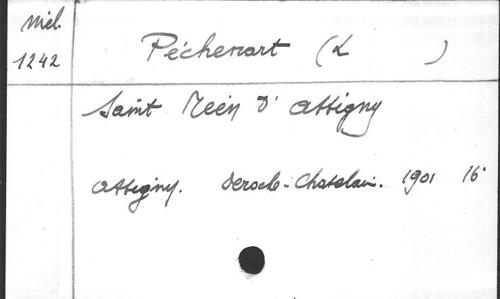 Mél.
1242
Péchenart (L )
Saint Méen d'Attigny
Attigny. Deroche-Chatelain. 1901 16°